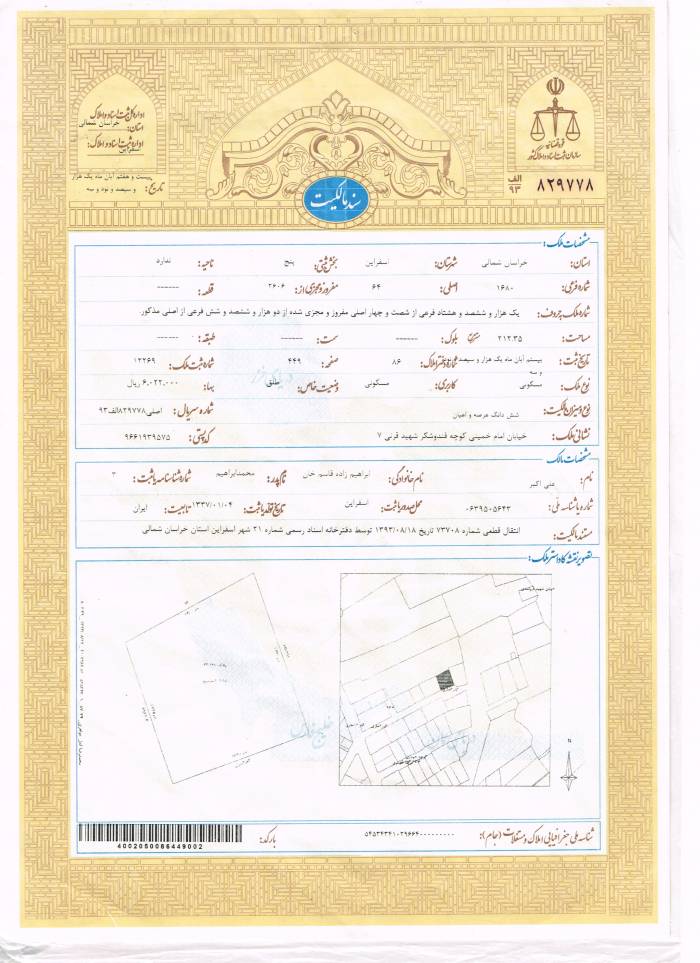 اداره کل ثبت اسناد و املاک
استان: خراسان شمالی
اداره ثبت اسناد و املاک:
اسفراین
تاریخ: بیست و هفتم آبان ماه یک هزار و سیصد و نود و سه
قوه قضائیه
سازمان ثبت اسناد و املاک کشور
الف
۹۳
۸۲۹۷۷۸
سند مالکیت
مشخصات ملک:
استان: خراسان شمالی شهرستان: اسفراین بخش ثبتی: پنج ناحیه: ندارد
شماره فرعی: ۱۶۸۰ اصلی: ۶۴ مفروز و مجزی از: ۲۶۰۶ قطعه: ------
شماره ملک بحروف: یک هزار و ششصد و هشتاد فرعی از شصت و چهار اصلی مفروز و مجزی شده از دو هزار و ششصد و شش فرعی از اصلی مذکور.
مساحت: ۲۱۲.۳۵ مترمربع بلوک: ------ سمت: ------ طبقه: ------
تاریخ ثبت: بیستم آبان ماه یک هزار و سیصد و نود و سه شماره دفتر املاک: ۸۶ صفحه: ۴۴۹ شماره ثبت ملک: ۱۳۲۶۹
نوع ملک: مسکونی کاربری: مسکونی وضعیت خاص: طلق بها: ۶.۰۲۲.۰۰۰ ریال
نوع و میزان مالکیت: شش دانگ عرصه و اعیان شماره سریال: اصلی۸۲۹۷۷۸الف۹۳
نشانی ملک: خیابان امام خمینی کوچه قندوشکر شهید قرنی ۷ کد پستی: ۹۶۶۱۹۳۹۵۷۵
مشخصات مالک
نام: علی اکبر نام خانوادگی: ابراهیم زاده قاسم خان نام پدر: محمدابراهیم شماره شناسنامه یا ثبت: ۳
شماره یا شناسه ملی: ۰۶۳۹۵۰۵۶۴۳ محل صدور یا ثبت: اسفراین تاریخ تولد یا ثبت: ۱۳۳۷/۰۱/۰۴ تابعیت: ایران
مستند مالکیت: انتقال قطعی شماره ۷۳۷۰۸ تاریخ ۱۳۹۳/۰۸/۱۸ توسط دفترخانه اسناد رسمی شماره ۲۱ شهر اسفراین استان خراسان شمالی
تصویر نقشه کاداستر ملک:
خلیج فارس
N
شناسه ملی جغرافیایی املاک و مستغلات (جام):
بارکد:
4002050086449002